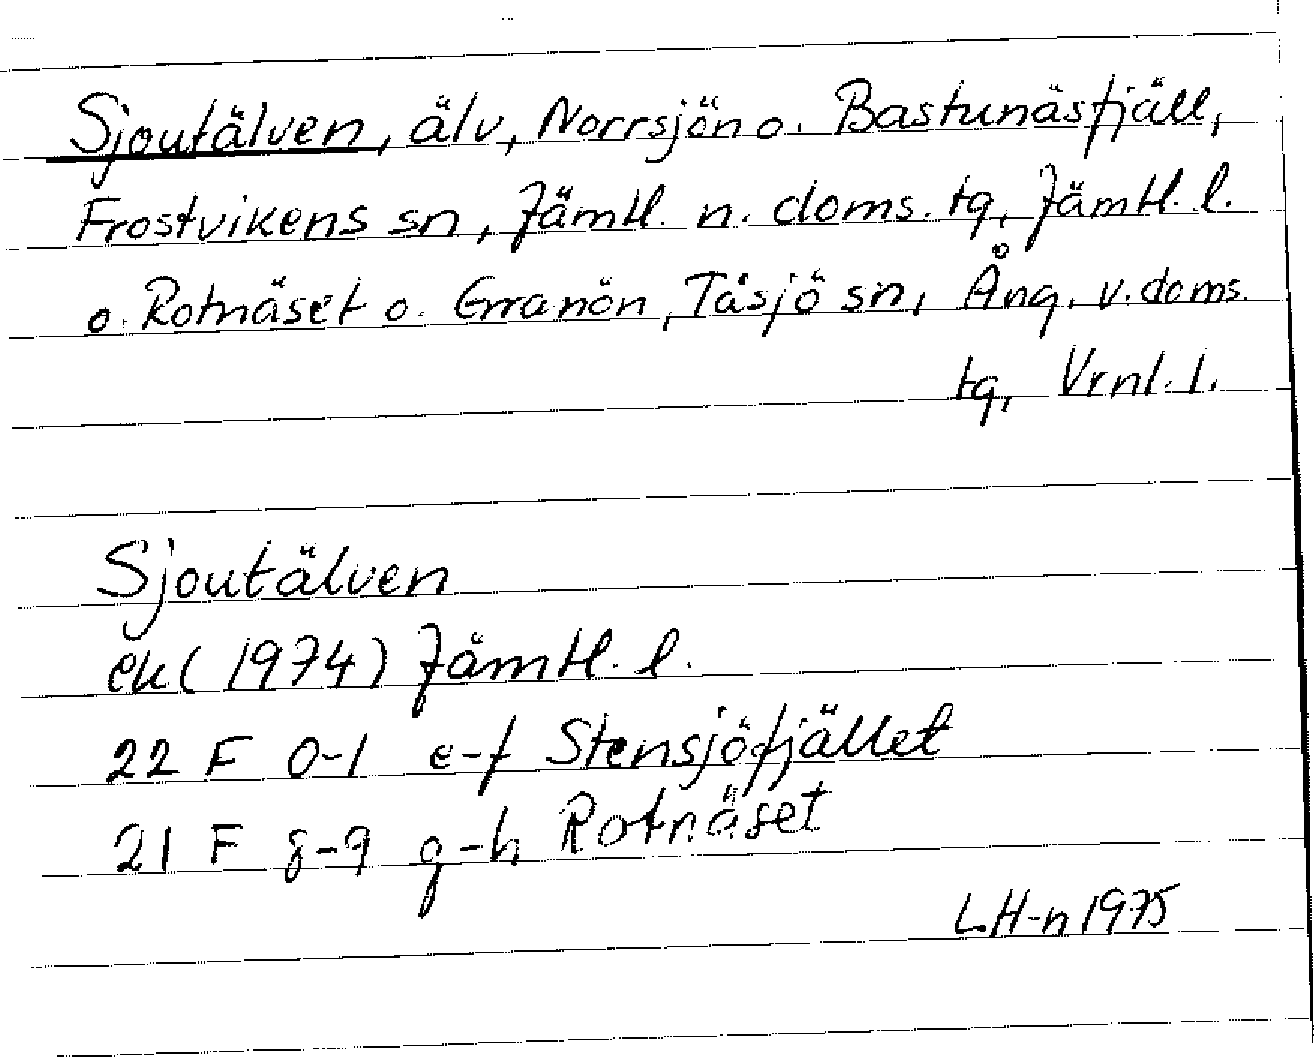 Sjoutälven, älv, Norrsjön o. Bastunäsfjäll,
Frostvikens sn, Jämtl. n. doms. tg, Jämtl. l.
o. Rotnäset o. Grranön, Tåsjö sn, Ång. v. doms.
tg, Vrnl. l.
Sjoutälven
ek (1974) Jämtl. l.
22 F 0-1 e-f Stensjöfjället
21 F 8-9 g-h Rotnäset
LH-n 1975